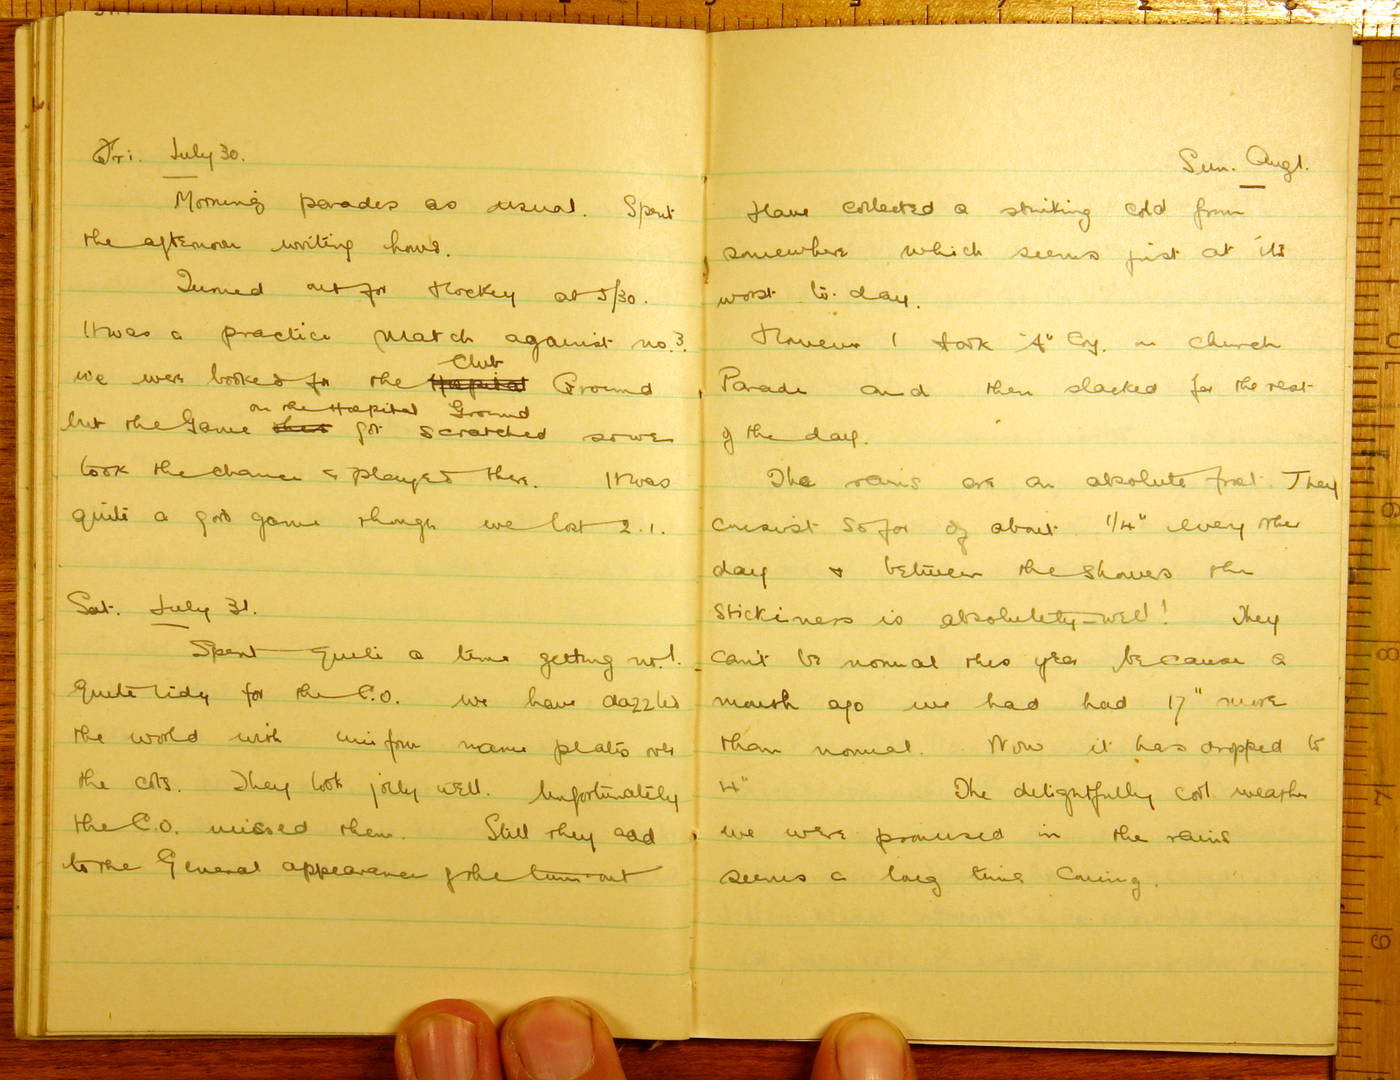 Fri. July 30.
Morning parades as usual. Spent
the afternoon writing home.
Turned out for Hockey at 5/30.
It was a practice match against no. 3.
Club
we were booked for the Hospital Ground
on the Hospital Ground
but the Game got scratched so we
took the chance & played there. It was
quite a good game though we lost 2.1.
Sat. July 31.
Spent quite a time getting no. 1.
quite tidy for the C.O. we have dazzled
the world with uniform name plates over
the cots. They look jolly well. Unfortunately
the C.O. missed them. Still they add
to the General appearance of the turn-out
Sun. Aug 1.
Have collected a striking cold from
somewhere which seems just at its
worst to-day.
However I took "A" Coy. on church
Parade and then slacked for the rest
of the day.
The rains are an absolute frost. They
consist so far of about 1/4" every other
day & between the showers the
stickiness is absolutely—well! They
can't be normal this year because a
month ago we had had 17" more
than normal. Now it has dropped to
4" The delightfully cool weather
we were promised in the rains
seems a long time coming.